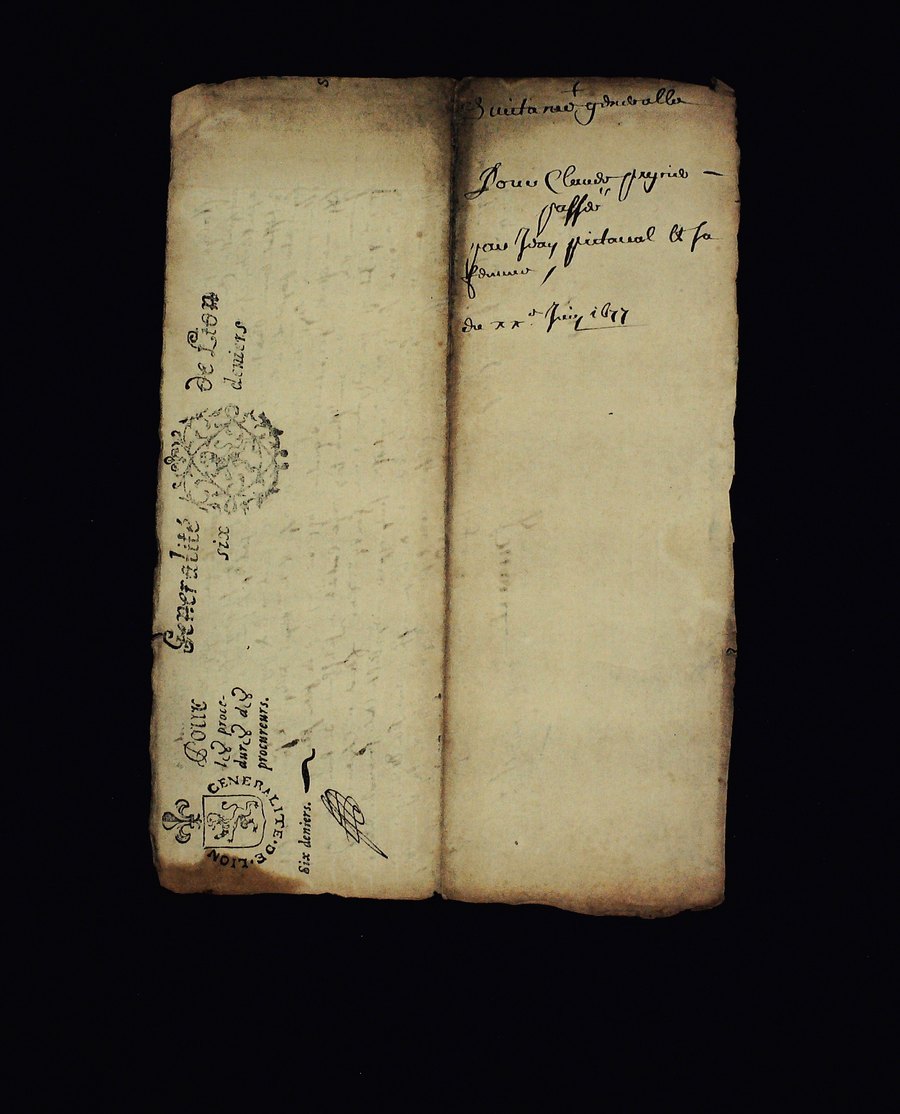 Quitance generalle
Pour Claude
passée
par Jean pictaval et sa
femme
du xxe Juin 1677
Generalité de Lion
six deniers
Pour
les proce-
dures des
procureurs.
GENERALITE·DE·LION
Six deniers.